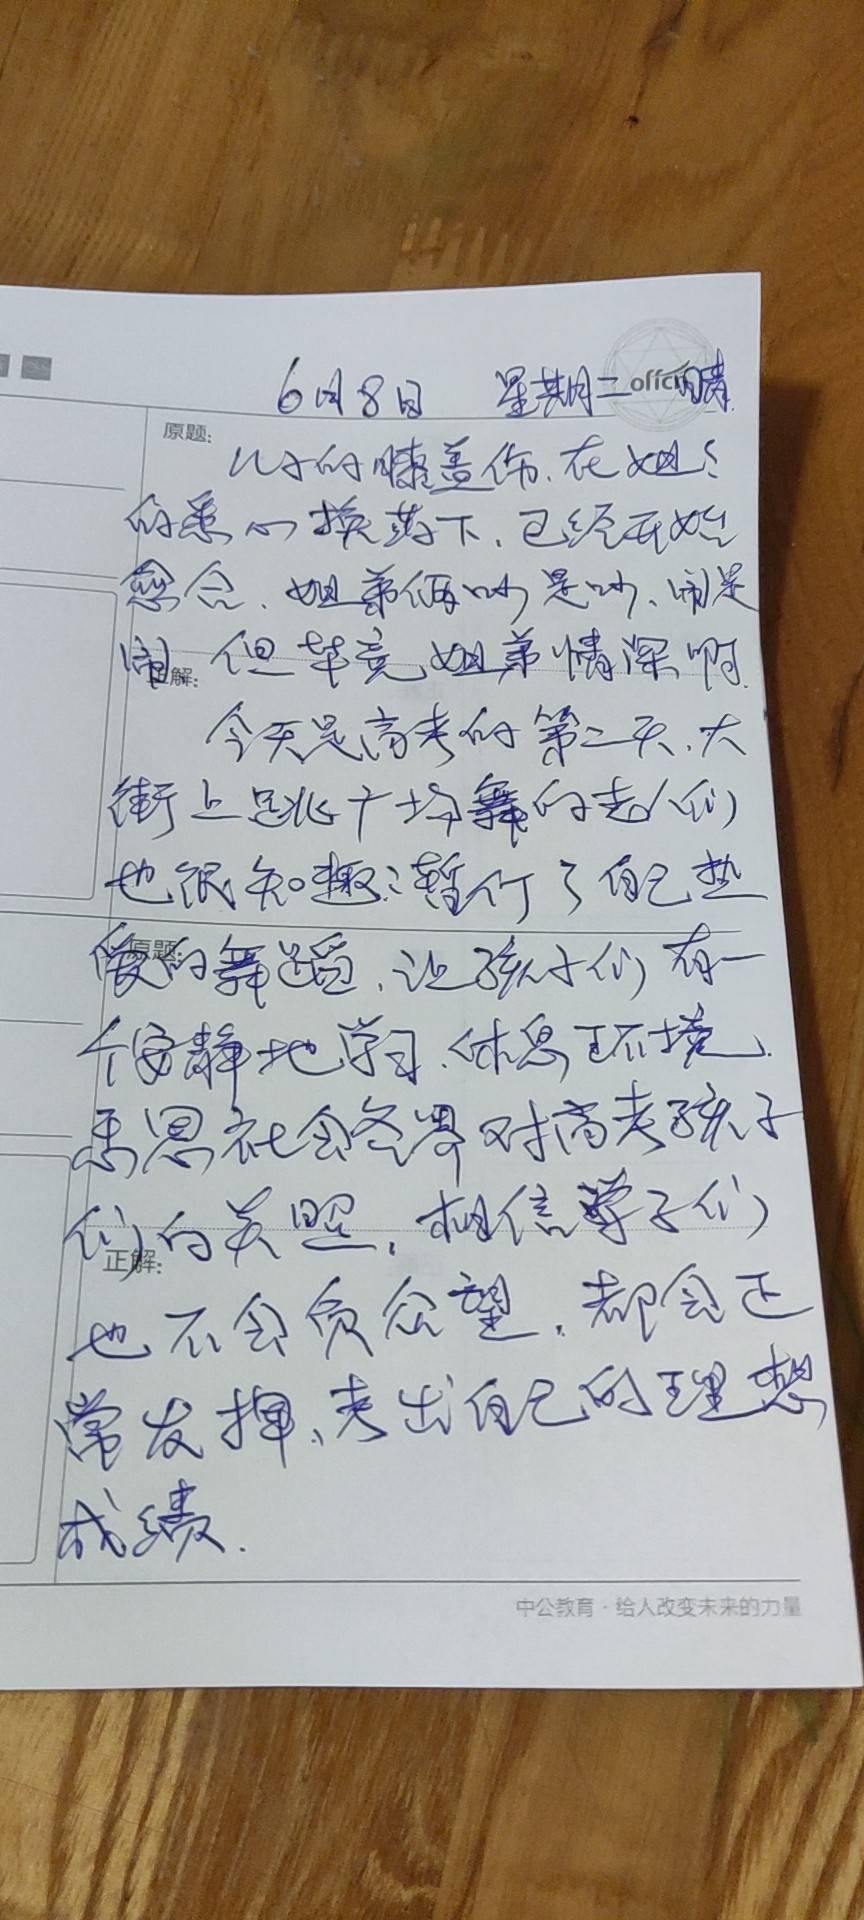 6月8日 星期二 晴
offcn
原题:
儿子的膝盖伤、在姐姐
的悉心换药下、已经开始
愈合、姐弟俩吵是吵、闹是
闹 但毕竟姐弟情深啊.
正解:
今天是高考的第二天、大
街上跳广场舞的老人们
也很知趣:暂停了自己热
爱的舞蹈、让孩子们有一
原题:
个安静地学习、休息环境.
感恩社会各界对高考孩子
们的关照、相信学子们
正解:
也不会负众望、都会正
常发挥、考出自己的理想
成绩.
中公教育·给人改变未来的力量